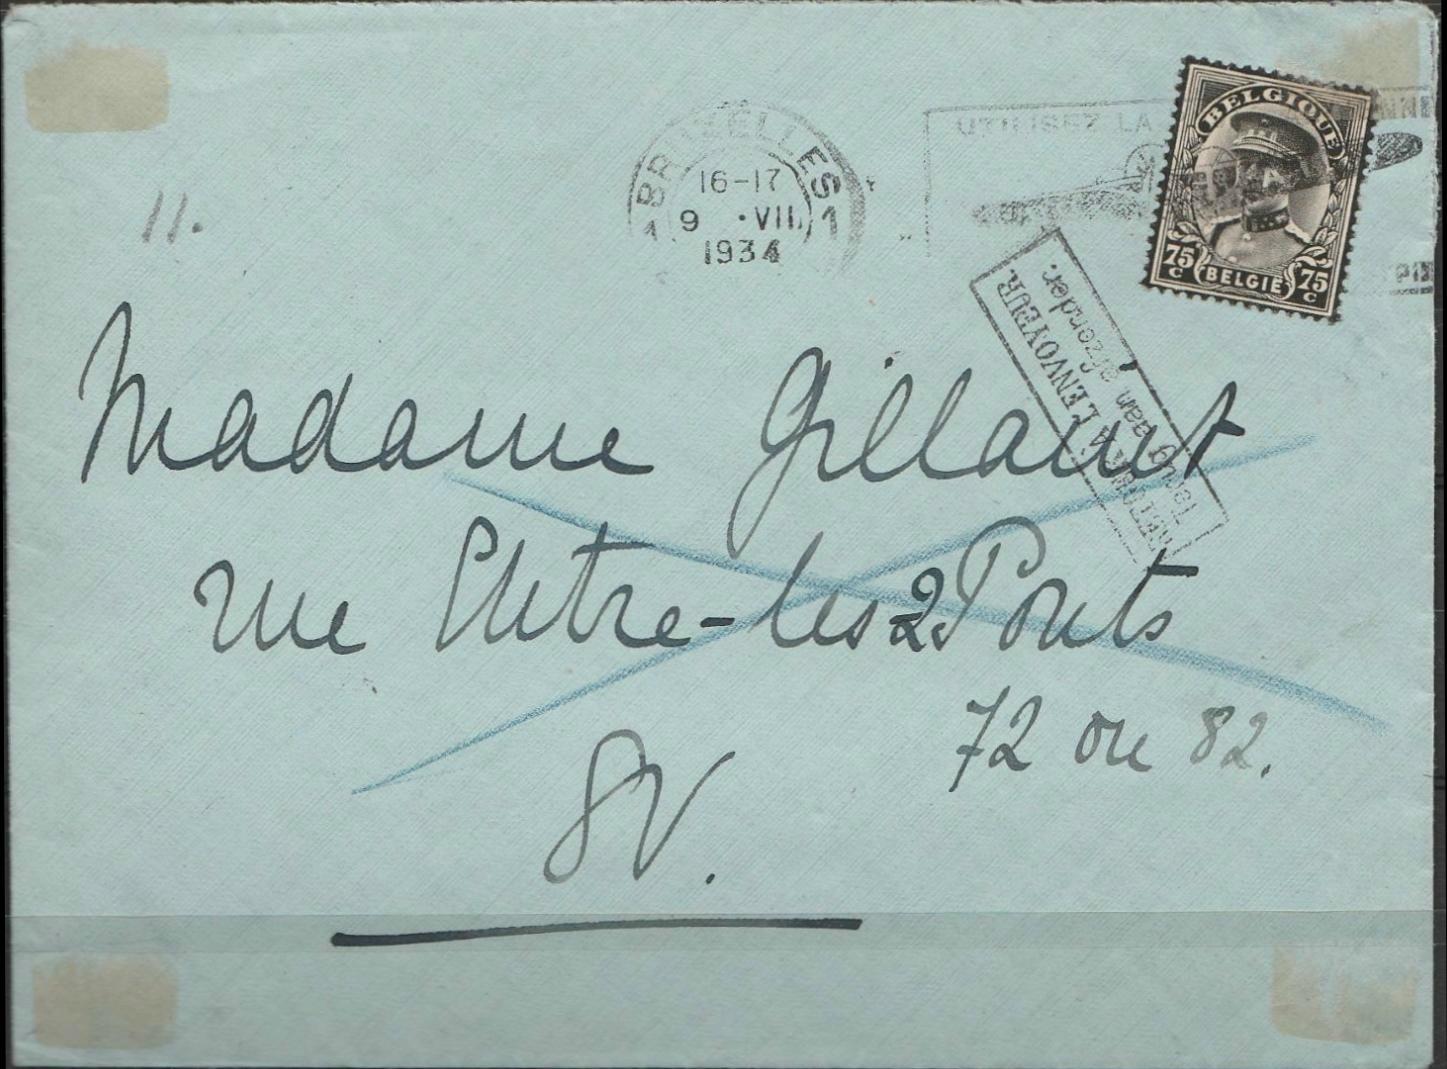 BRUXELLES
16-17
9 ·VII.
1934
1 1
UTILISEZ LA
BELGIQUE
75 C BELGIË 75 C
RETOUR A L'ENVOYEUR.
Terug aan afzender.
11.
Madame Gillaint
rue Entre-les 2 Ponts
72 ou 82.